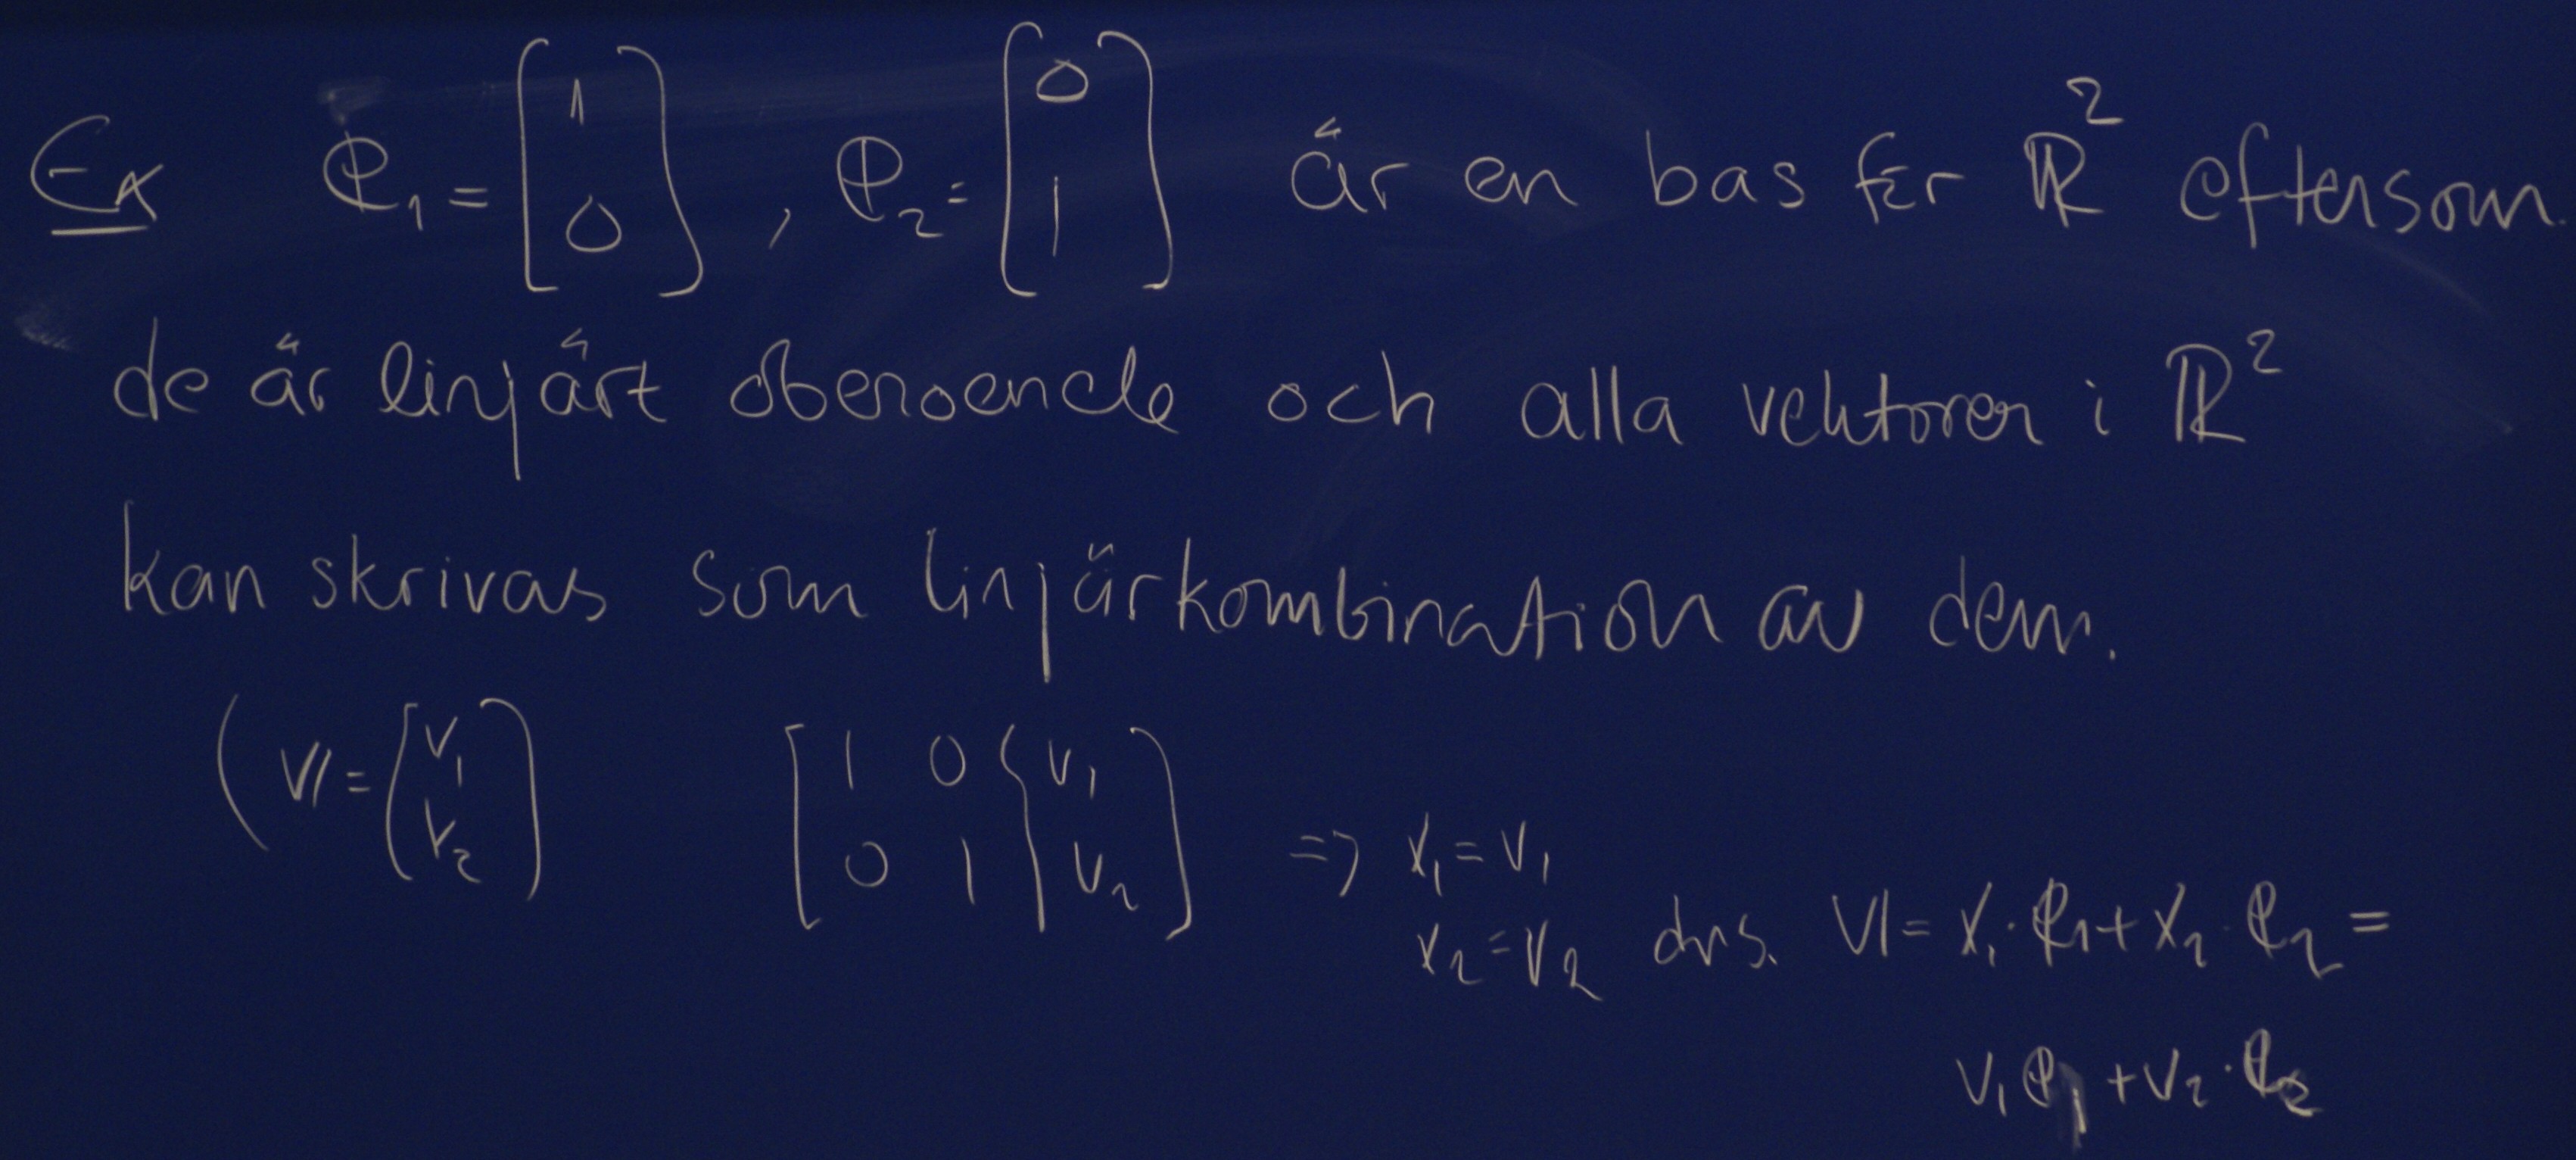 Ex 𝕖₁ = [1 0], 𝕖₂ = [0 1] är en bas för ℝ² eftersom
de är linjärt oberoende och alla vektorer i ℝ²
kan skrivas som linjärkombination av dem.
(𝕧 = [v₁ v₂] [1 0 | v₁ ; 0 1 | v₂] => x₁ = v₁
x₂ = v₂ dvs. 𝕧 = x₁·𝕖₁ + x₂·𝕖₂ =
v₁𝕖₁ + v₂·𝕖₂